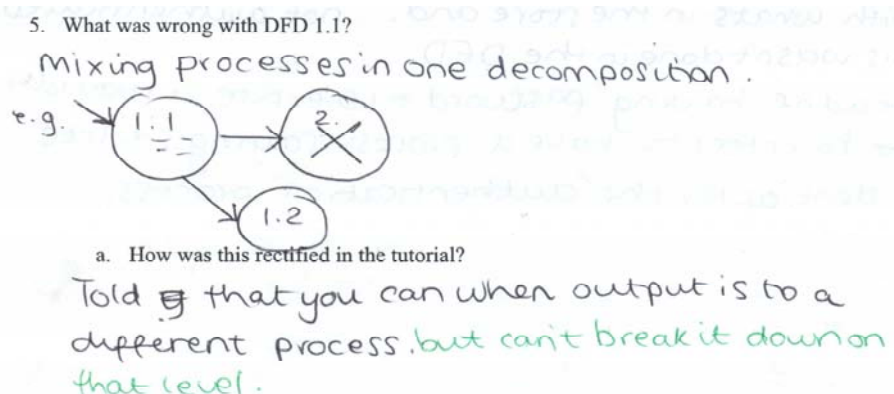 5. What was wrong with DFD 1.1?
Mixing processes in one decomposition.
e.g.
1.1
2.
1.2
a. How was this rectified in the tutorial?
Told that you can when output is to a
different process. but can't break it down on
that level.